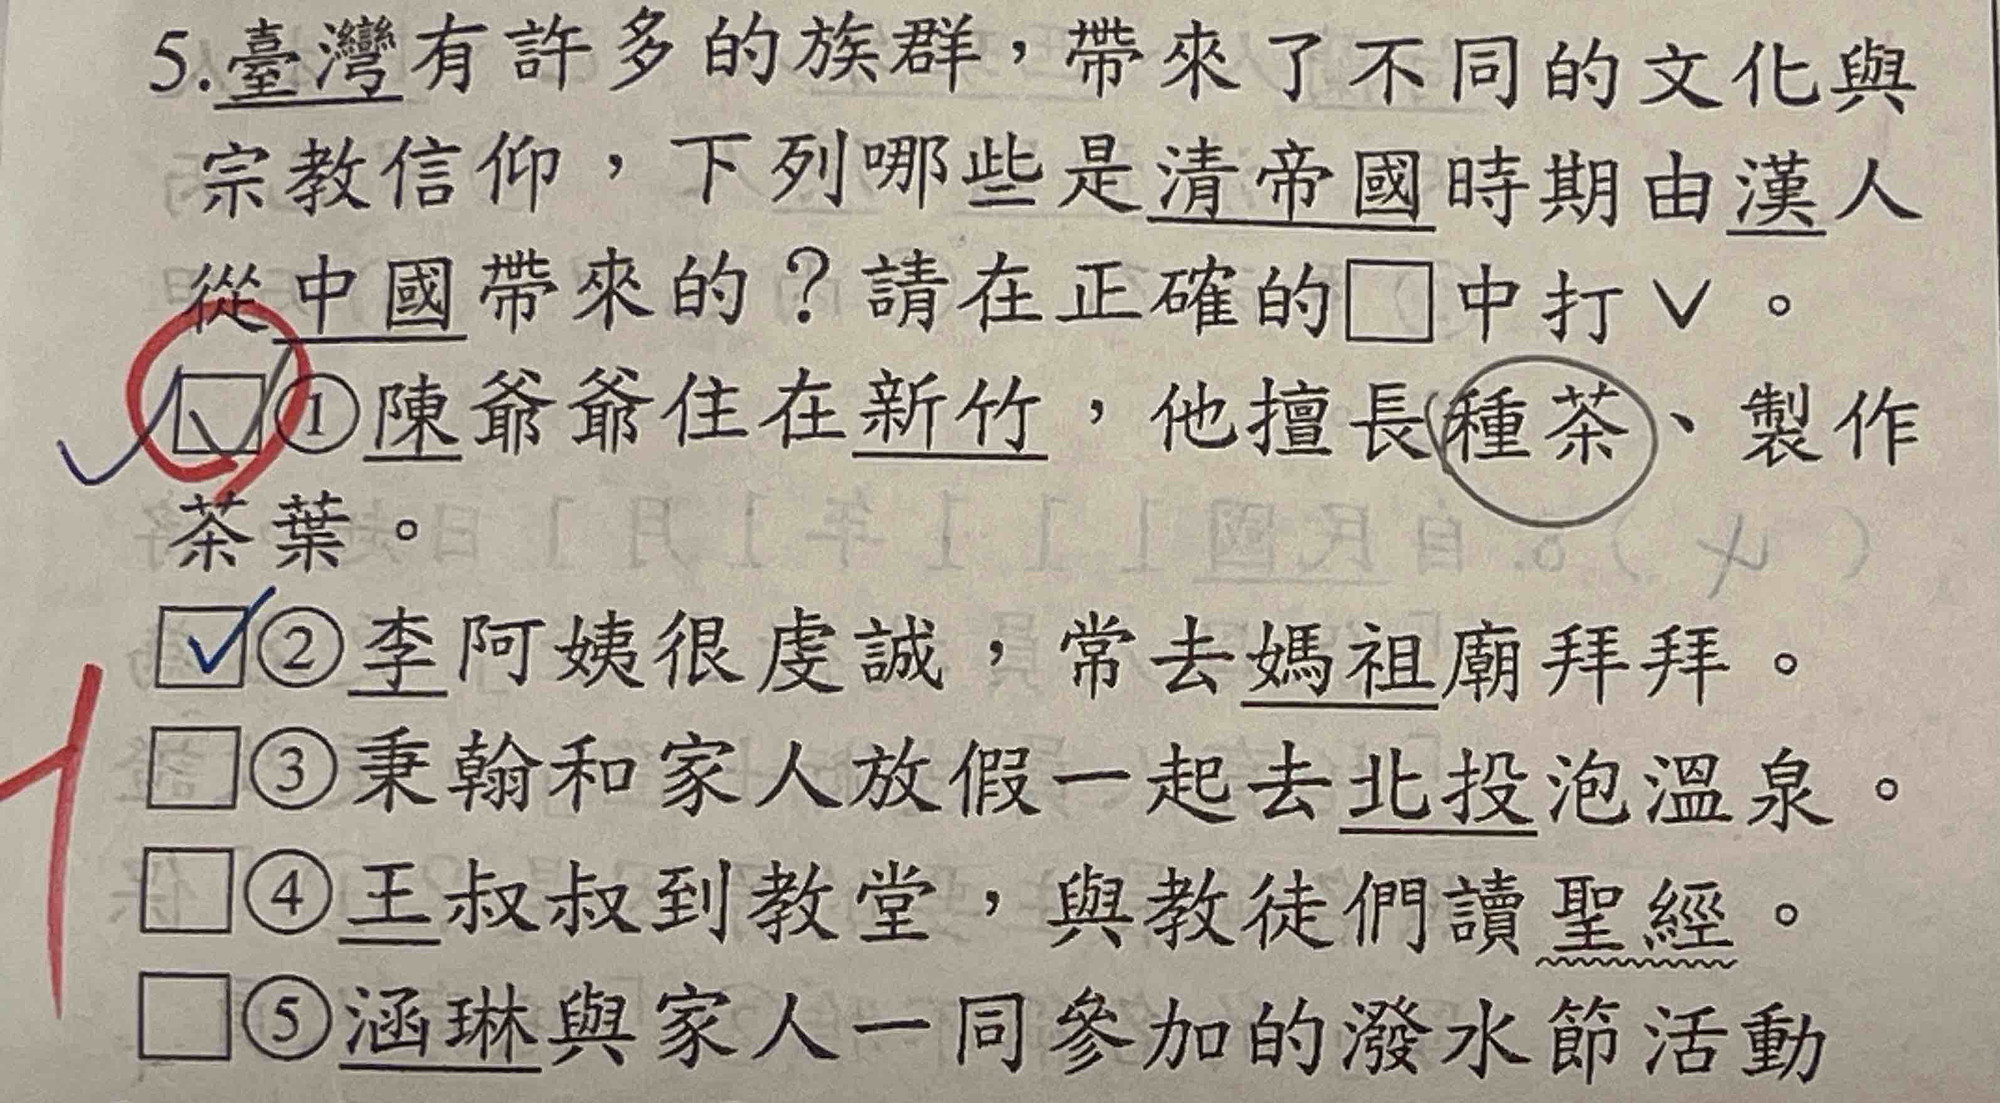 5.臺灣有許多的族群，帶來了不同的文化與
宗教信仰，下列哪些是清帝國時期由漢人
從中國帶來的？請在正確的□中打∨。
☑①陳爺爺住在新竹，他擅長種茶、製作
茶葉。
☑②李阿姨很虔誠，常去媽祖廟拜拜。
□③秉翰和家人放假一起去北投泡溫泉。
□④王叔叔到教堂，與教徒們讀聖經。
□⑤涵琳與家人一同參加的潑水節活動